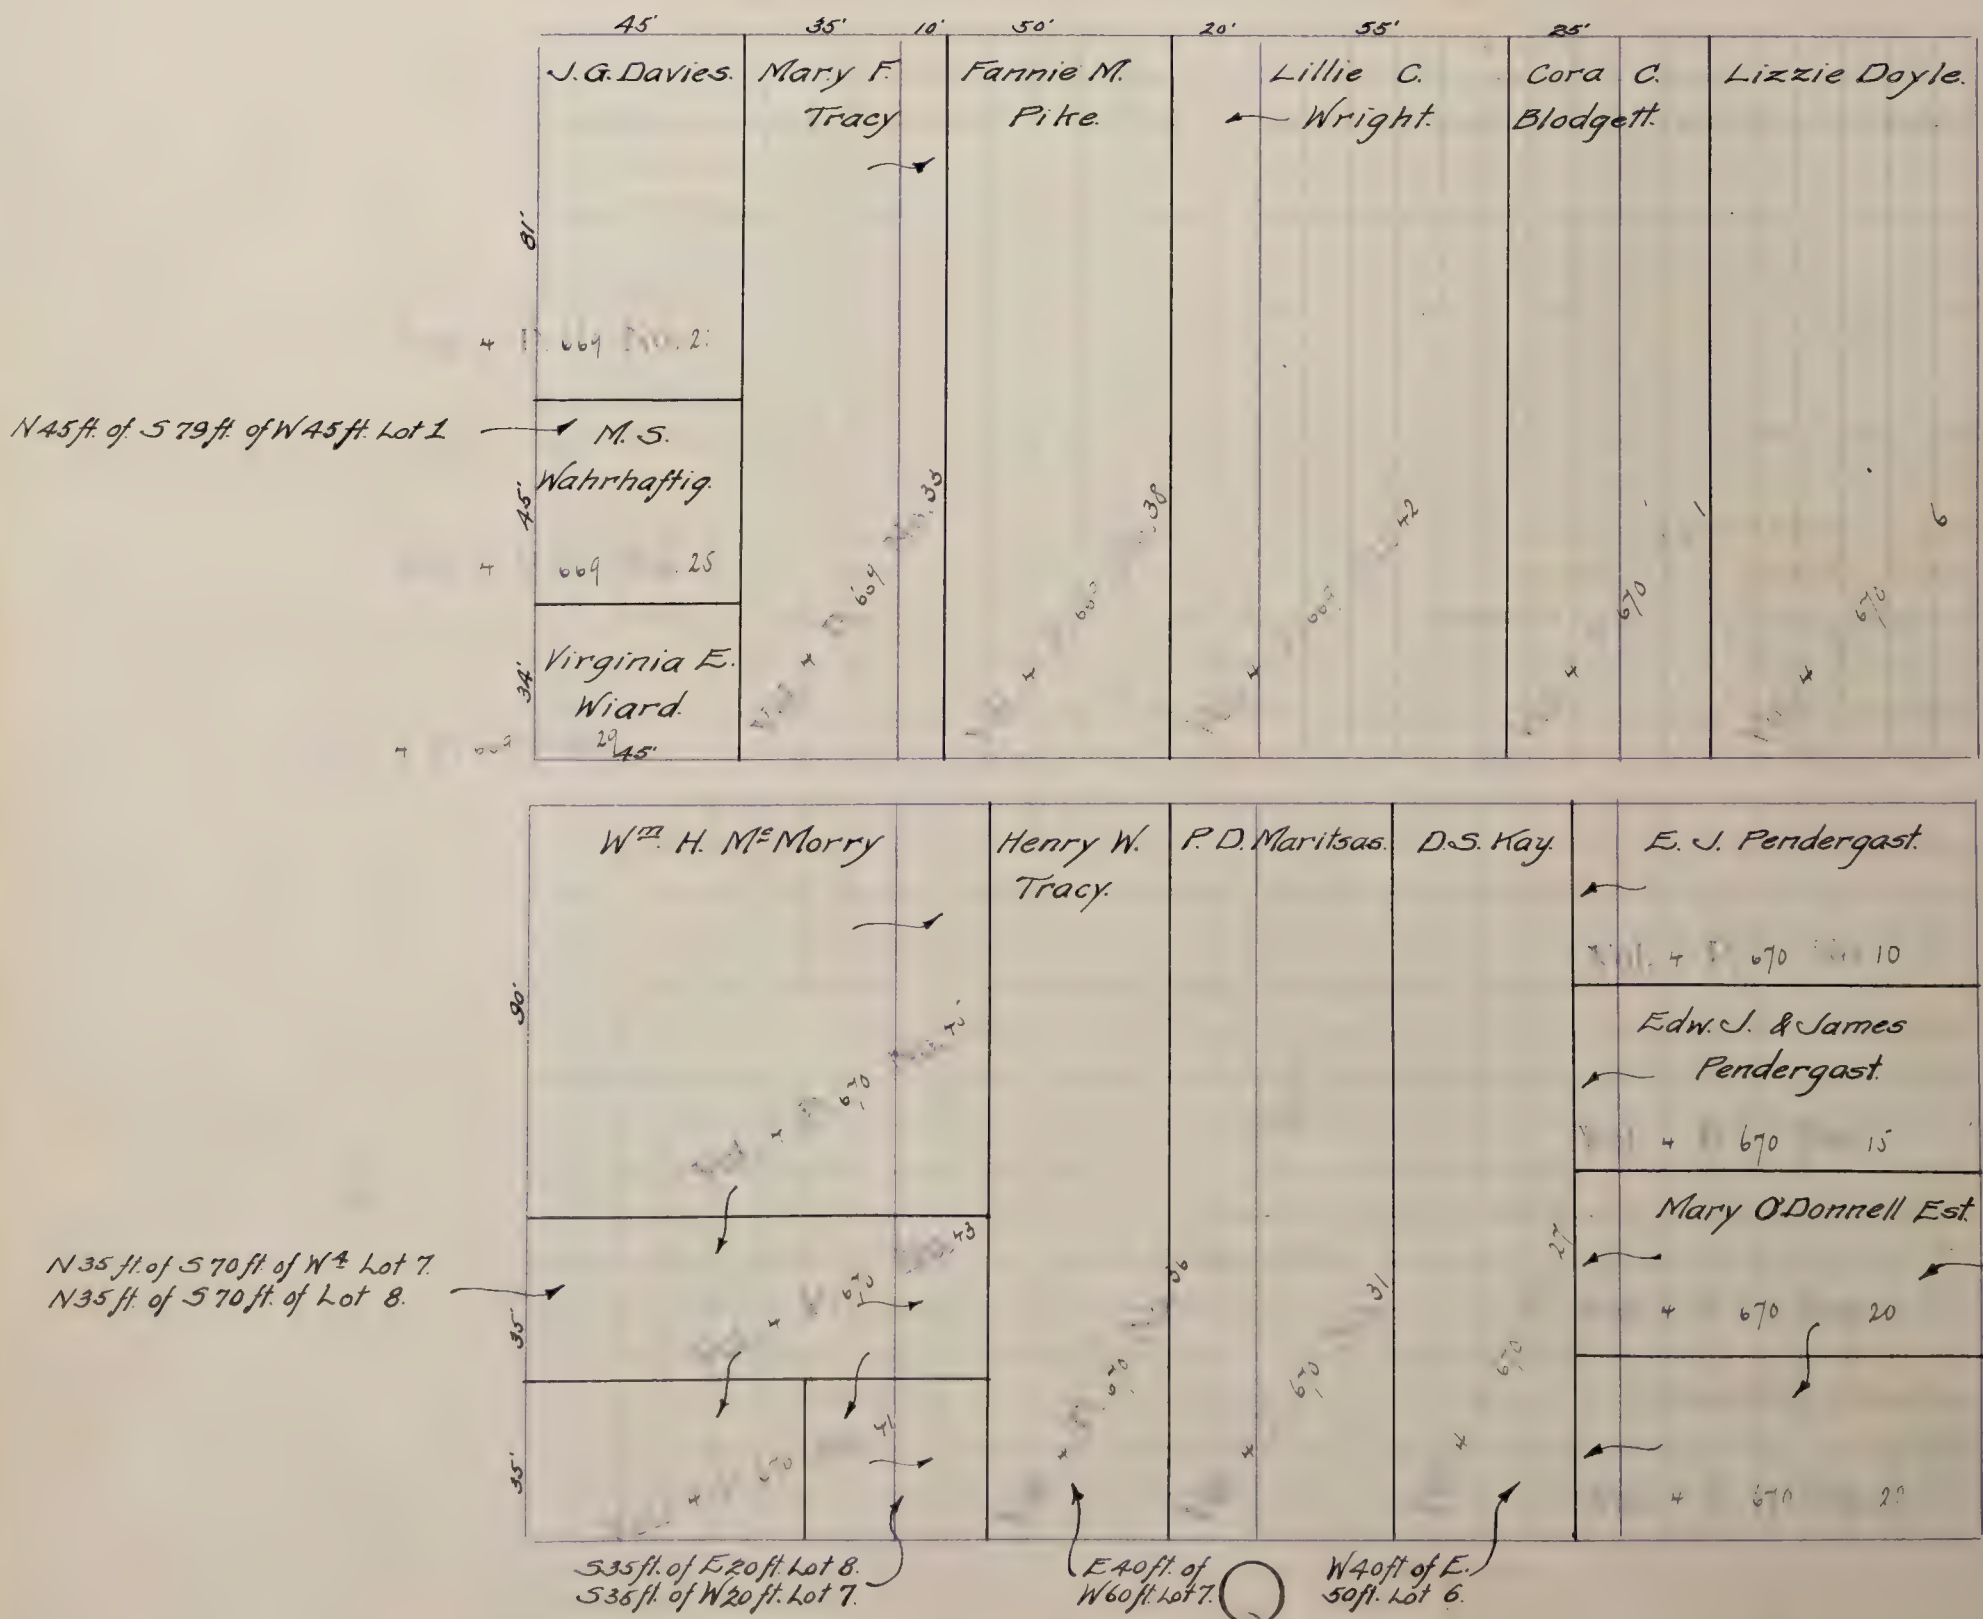 45' 35' 10' 50' 20' 55' 25'
J.G. Davies.
Mary F.
Tracy
Fannie M.
Pike.
Lillie C.
Wright.
Cora C.
Blodgett.
Lizzie Doyle.
81'
4 669 2
N 45 ft. of S 79 ft. of W 45 ft. Lot 1
M. S.
Wahrhaftig.
45'
4 669 25
34'
Virginia E.
Wiard.
29
45'
4 669 No. 33
4 38
4 42
4 670 1
4 670 6
Wm. H. Mc Morry
Henry W.
Tracy.
P. D. Maritsas.
D.S. Kay.
E. J. Pendergast.
Vol. 4 P. 670 10
90'
Vol. 4 P. 670
Edw. J. & James
Pendergast.
4 670 15
Mary O'Donnell Est.
4 670 20
4 670
N 35 ft. of S 70 ft. of W 4 Lot 7.
N 35 ft. of S 70 ft. of Lot 8.
35'
Vol. 4 670 43
35'
4 670 41
4 670 36
4 670 31
4 670 27
S 35 ft. of E 20 ft. Lot 8.
S 35 ft. of W 20 ft. Lot 7.
E 40 ft. of
W 60 ft. Lot 7.
W 40 ft of E.
50 ft. Lot 6.